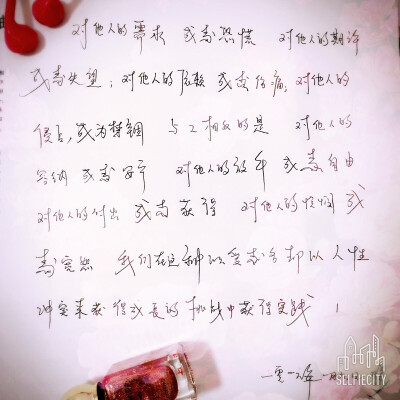 对他人的需求 成为恐慌 对他人的期许
成为失望；对他人的依赖 成为伤痛，对他人的
侵占，成为禁锢 与之相反的是 对他人的
容纳 成为安宁 对他人的放手 成为自由
对他人的付出 成为获得 对他人的怜悯 成
为宽恕 我们在这种以爱为名却以人性
冲突来获得成长的挑战中获得实践！
SELFIECITY